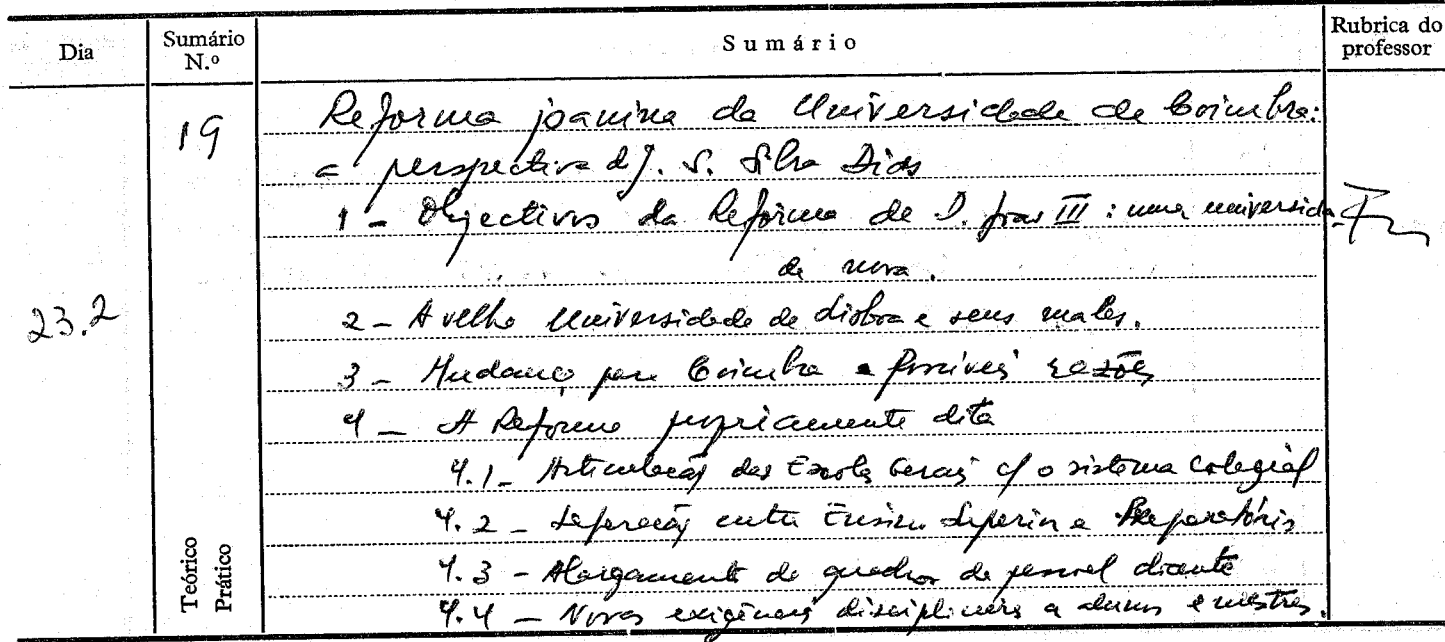 Dia
Sumário N.º
Sumário
Rubrica do professor
23.2
19
Teórico
Prático
Reforma joanina da Universidade de Coimbra:
a perspectiva de J. S. Silva Dias
1 - Objectivos da Reforma de D. João III : uma universida-
de nova.
2 - A velha Universidade de Lisboa e seus males.
3 - Mudança para Coimbra e possíveis razões
4 - A Reforma propriamente dita
4.1 - Articulação das Escolas Gerais c/ o sistema colegial
4.2 - Separação entre Ensino Superior e Preparatório
4.3 - Alargamento do quadro de pessoal docente
4.4 - Novas exigências disciplinares a alunos e mestres.